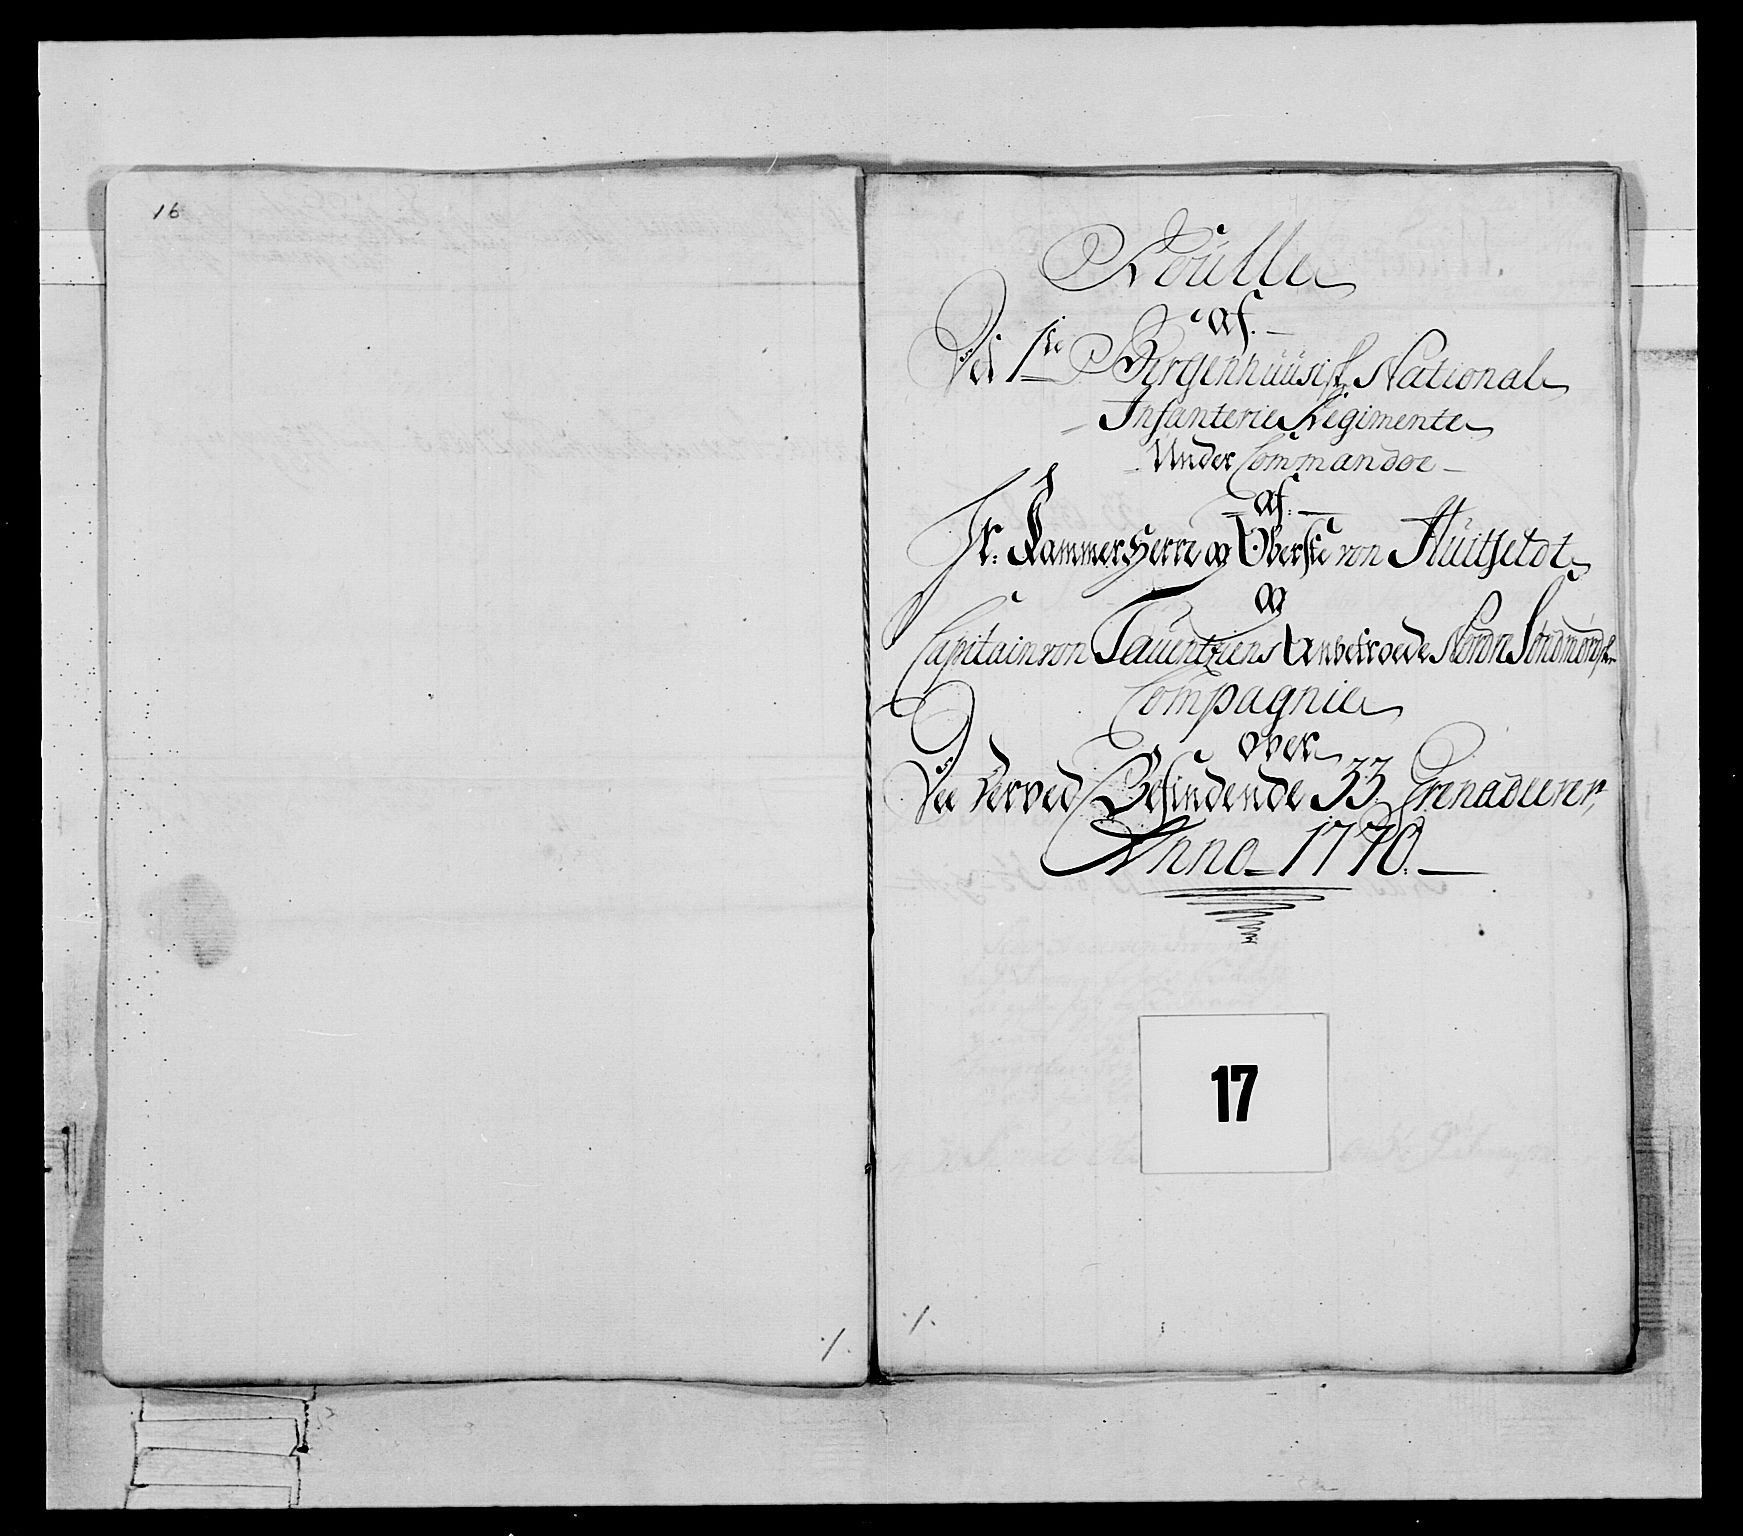 16
Roulle
af
Ved 1ste Bergenhuusisk National
Infanterie Regimente
Under Commandoe
af
Hr: Kammerherre og Oberste von Huitfeldt
og
Capitain von Tauentziens Anbetroede Nordre Søndmørske
Compagnie
over
Dee derved Befindende 33 Grenadeerer,
Anno 1770.
17
./.
./.